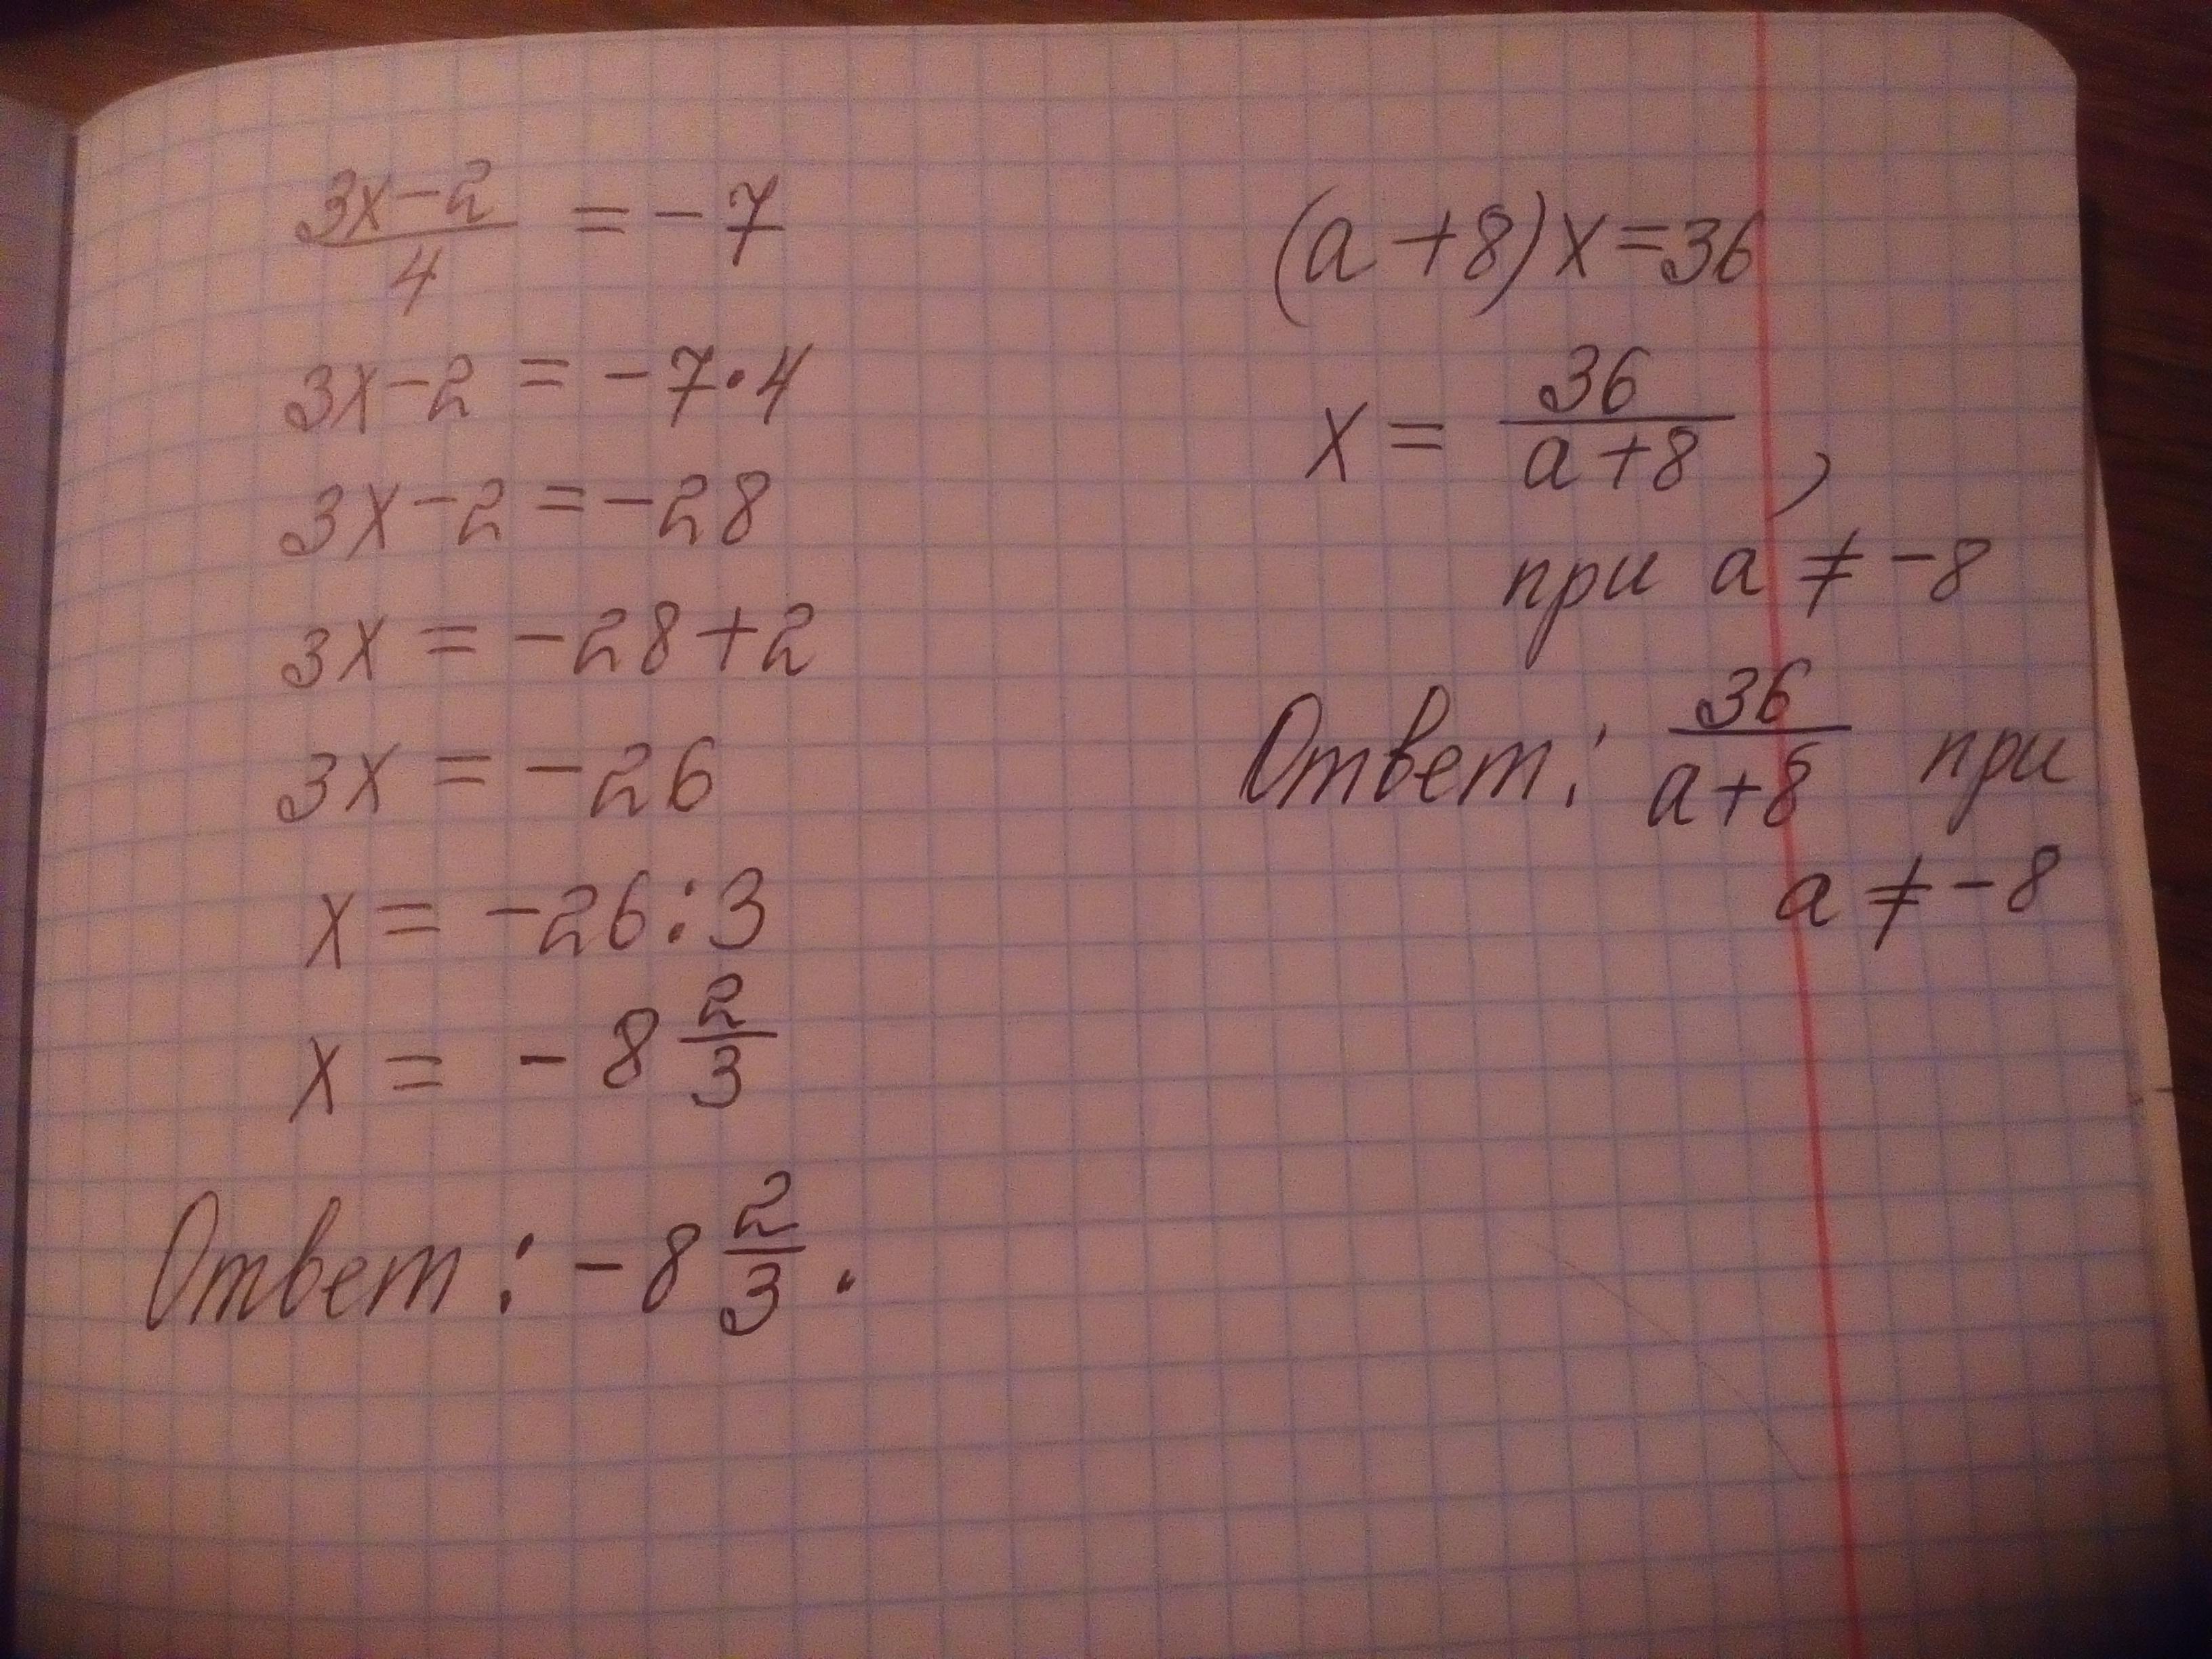 (3x-2)/4 = -7
3x-2 = -7·4
3x-2 = -28
3x = -28+2
3x = -26
x = -26:3
x = -8 2/3
Ответ: -8 2/3.
(a+8)x=36
x = 36/(a+8),
при a ≠ -8
Ответ: 36/(a+8) при
a ≠ -8